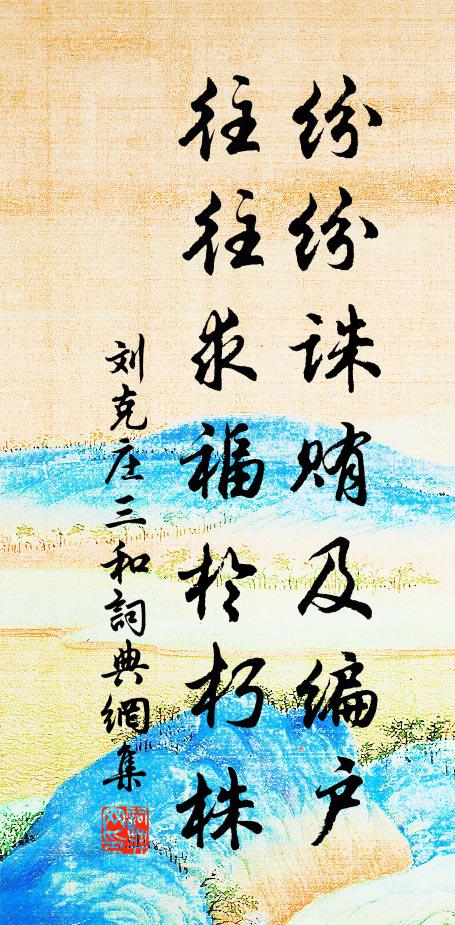 纷纷诛贿及编户
往往求福於朽株
刘克庄三和詞典網集